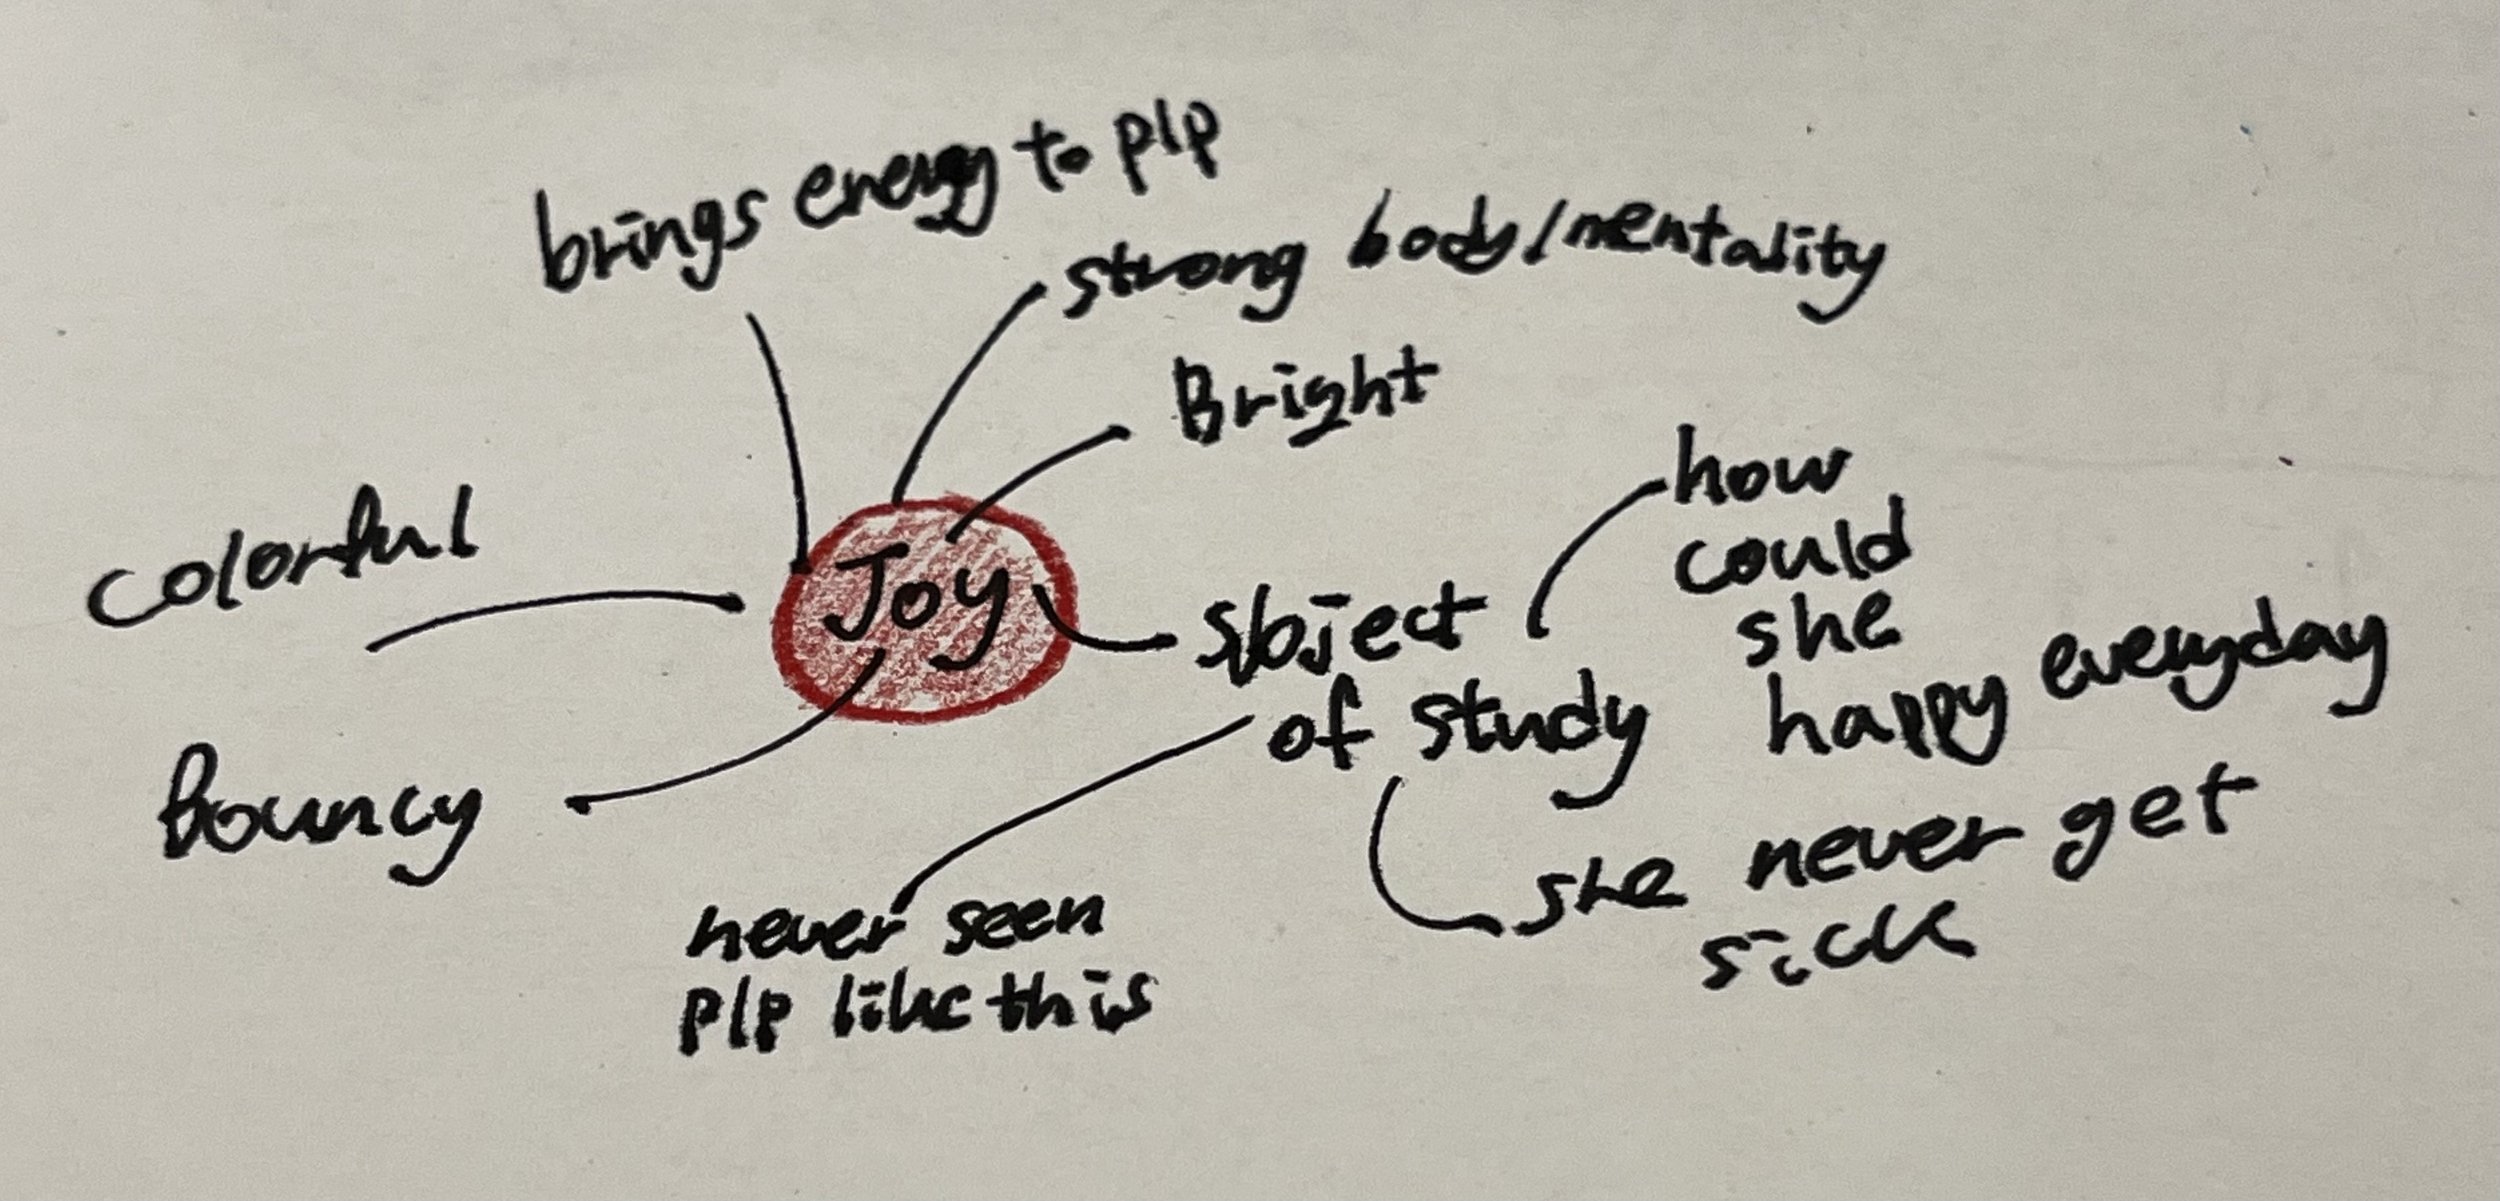 brings energy to plp
strong body/mentality
Bright
how
could
she
happy everyday
colorful
Joy
sbject
of study
Bouncy
she never get
sick
never seen
plp like this